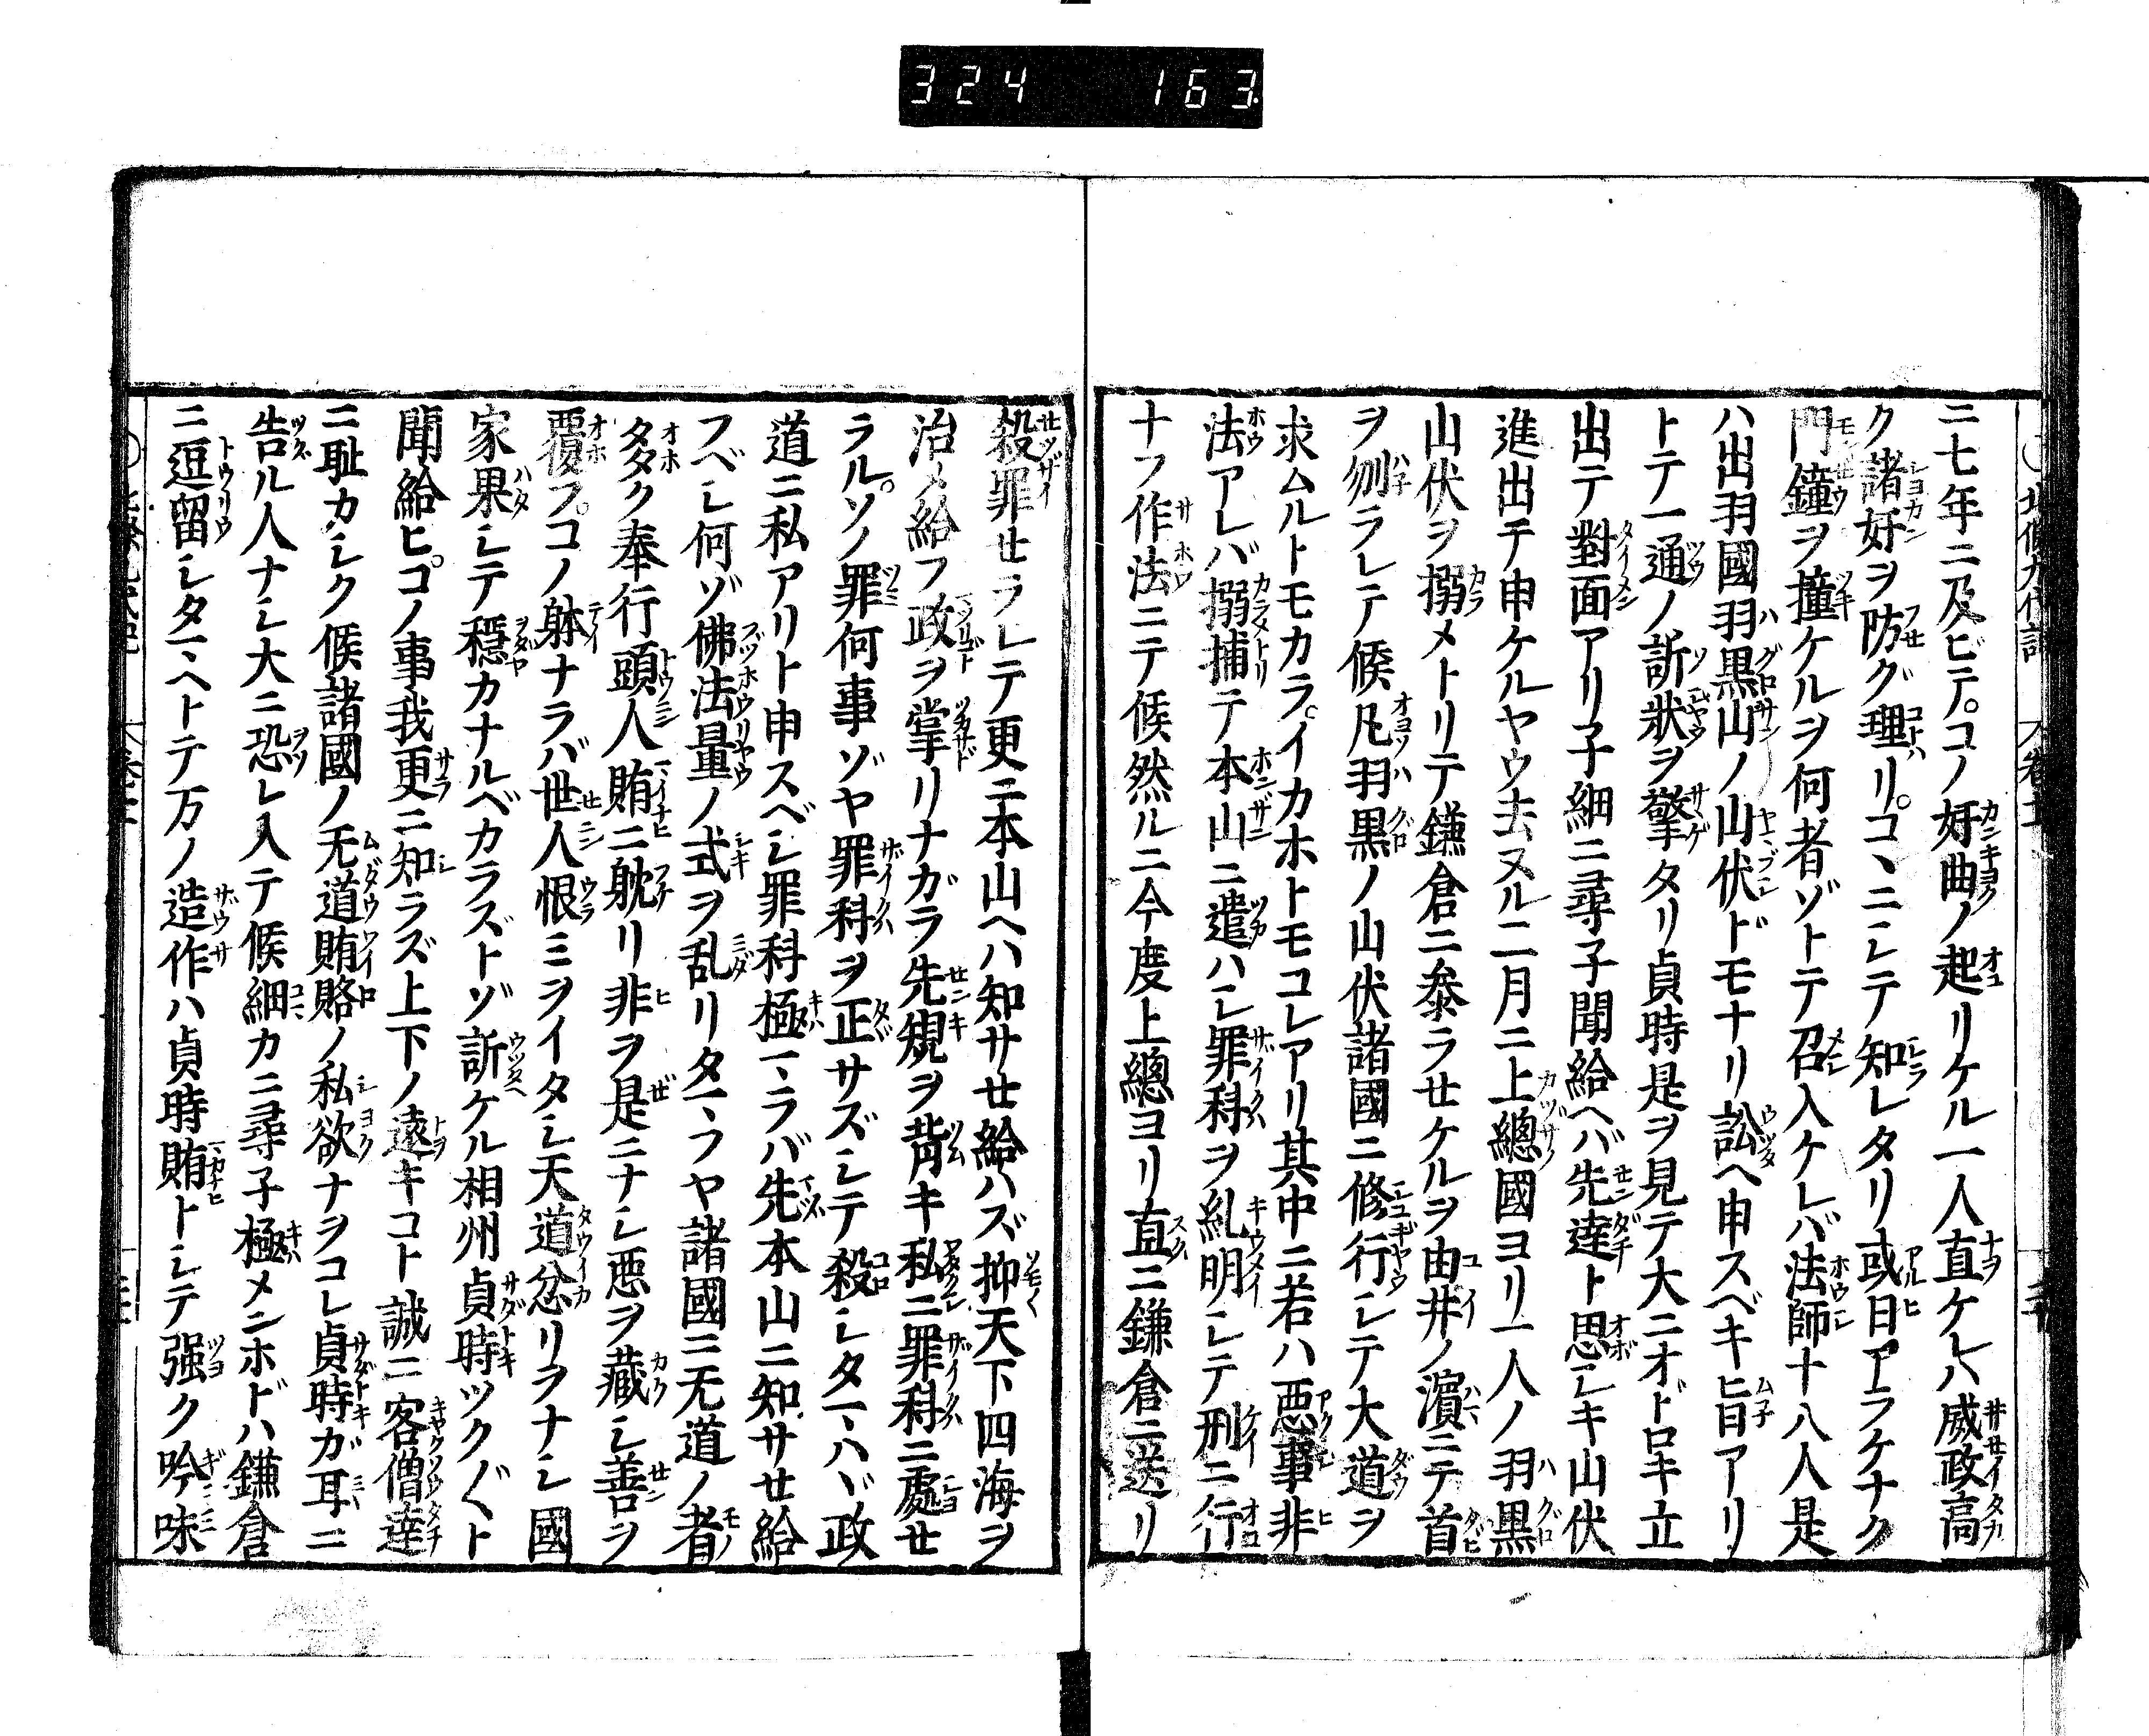 324 163
ニ七年ニ及ビテ。コノ奸曲ノ起リケル一人直ケレハ威政高
ク諸奸ヲ防グ理リ。コヽニシテ知レタリ或日アラケナク
門鐘ヲ撞ケルヲ何者ゾトテ召入ケレバ法師十八人是
ハ出羽國羽黒山ノ山伏ドモナリ訟ヘ申スベキ旨アリ
トテ一通ノ訴狀ヲ擎タリ貞時是ヲ見テ大ニオドロキ立
出テ對面アリ子細ニ尋子聞給ヘバ先達ト思シキ山伏
進出テ申ケルヤウ去ヌル二月ニ上總國ヨリ一人ノ羽黒
山伏ヲ搦メトリテ鎌倉ニ參ラせケルヲ由井ノ濱ニテ首
ヲ刎ラレテ候凡羽黒ノ山伏諸國ニ修行シテ大道ヲ
求ムルトモカラ。イカホトモコレアリ其中ニ若ハ悪事非
法アレバ搦捕テ本山ニ遣ハシ罪科ヲ糺明シテ刑ニ行
ナフ作法ニテ候然ルニ今度上總ヨリ直ニ鎌倉ニ送リ
殺罪せラレテ更ニ本山ヘハ知サせ給ハズ抑天下四海ヲ
治メ給フ政ヲ掌リナガラ先規ヲ背キ私ニ罪科ニ處せ
ラル。ソノ罪何事ゾヤ罪科ヲ正サズシテ殺シタマハヾ政
道ニ私アリト申スベシ罪科極マラバ先本山ニ知サせ給
フベシ何ゾ佛法量ノ式ヲ乱リタマフヤ諸國ニ无道ノ者
多ク奉行頭人賄ニ耽リ非ヲ是ニナシ悪ヲ藏シ善ヲ
覆フ。コノ躰ナラバ世人恨ミヲイタシ天道忿リヲナシ國
家果シテ穩カナルベカラズトゾ訴ケル相州貞時ツク〲ト
聞給ヒ。コノ事我更ニ知ラズ上下ノ遠キコト誠ニ客僧達
ニ耻カシク候諸國ノ无道賄賂ノ私欲ナヲコレ貞時ガ耳ニ
告ル人ナシ大ニ恐レ入テ候細カニ尋子極メンホドハ鎌倉
ニ逗留シタマヘトテ万ノ造作ハ貞時賄トシテ强ク吟味